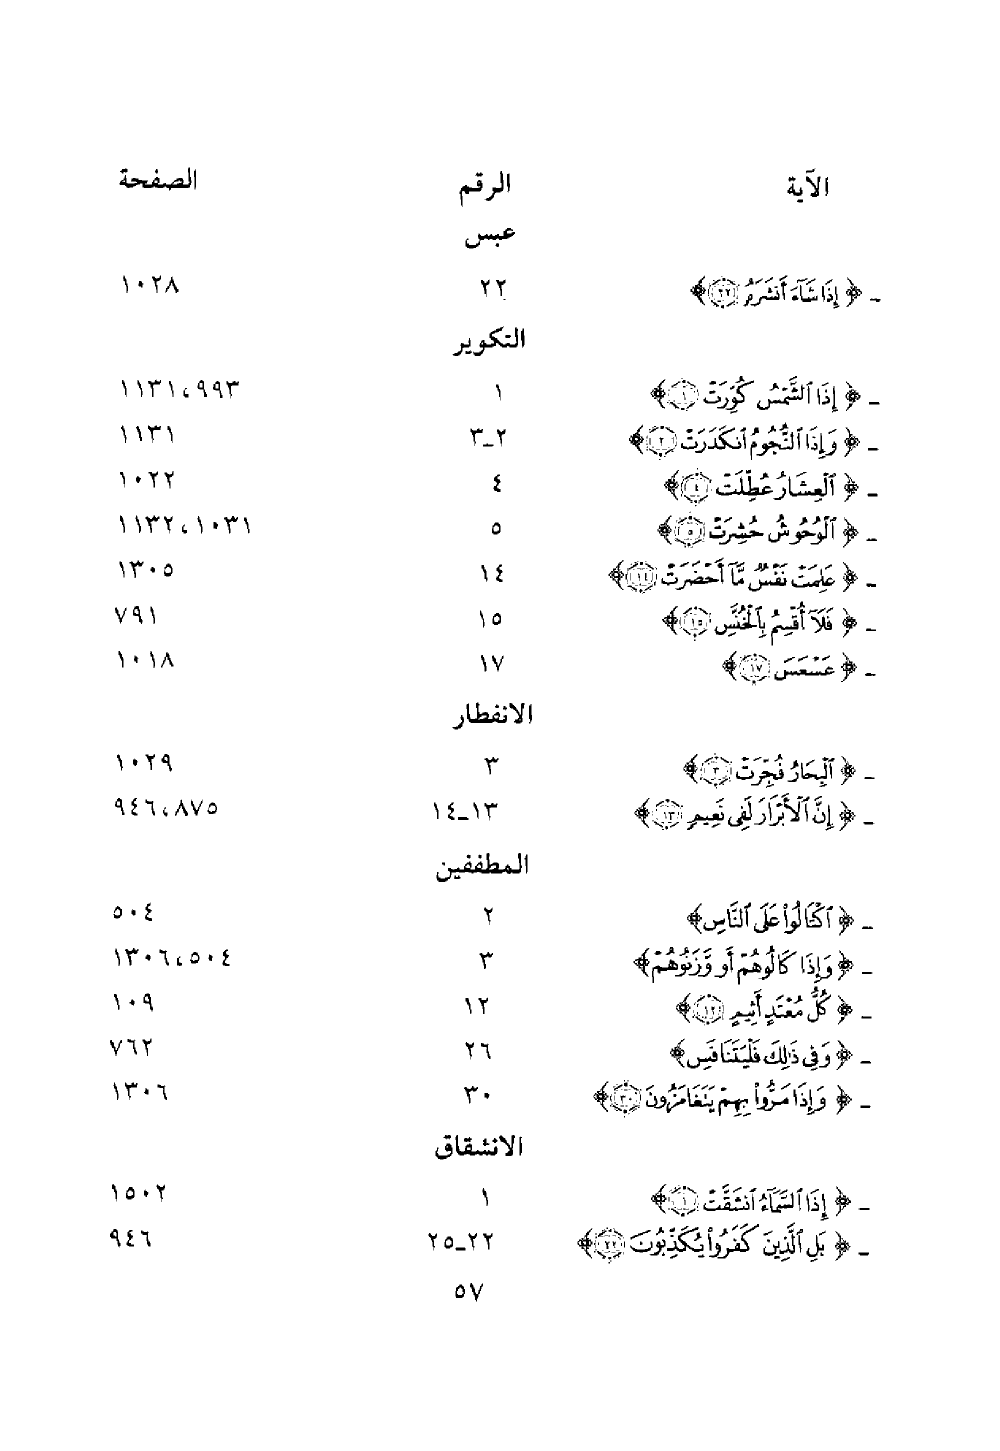 الآية الرقم الصفحة
عبس
ـ ﴿ إِذَا شَآءَ أَنشَرَهُۥ ٢٢ ﴾ ٢٢ ١٠٢٨
التكوير
ـ ﴿ إِذَا ٱلشَّمْسُ كُوِّرَتْ ١ ﴾ ١ ٩٩٣، ١١٣١
ـ ﴿ وَإِذَا ٱلنُّجُومُ ٱنكَدَرَتْ ٢ ﴾ ٢ـ٣ ١١٣١
ـ ﴿ ٱلْعِشَارُ عُطِّلَتْ ٤ ﴾ ٤ ١٠٢٢
ـ ﴿ ٱلْوُحُوشُ حُشِرَتْ ٥ ﴾ ٥ ١٠٣١، ١١٣٢
ـ ﴿ عَلِمَتْ نَفْسٌ مَّآ أَحْضَرَتْ ١٤ ﴾ ١٤ ١٣٠٥
ـ ﴿ فَلَآ أُقْسِمُ بِٱلْخُنَّسِ ١٥ ﴾ ١٥ ٧٩١
ـ ﴿ عَسْعَسَ ١٧ ﴾ ١٧ ١٠١٨
الانفطار
ـ ﴿ ٱلْبِحَارُ فُجِّرَتْ ٣ ﴾ ٣ ١٠٢٩
ـ ﴿ إِنَّ ٱلْأَبْرَارَ لَفِى نَعِيمٍ ١٣ ﴾ ١٣ـ١٤ ٨٧٥، ٩٤٦
المطففين
ـ ﴿ ٱكْتَالُوا۟ عَلَى ٱلنَّاسِ ﴾ ٢ ٥٠٤
ـ ﴿ وَإِذَا كَالُوهُمْ أَو وَّزَنُوهُمْ ﴾ ٣ ٥٠٤، ١٣٠٦
ـ ﴿ كُلُّ مُعْتَدٍ أَثِيمٍ ١٢ ﴾ ١٢ ١٠٩
ـ ﴿ وَفِى ذَٰلِكَ فَلْيَتَنَافَسِ ﴾ ٢٦ ٧٦٢
ـ ﴿ وَإِذَا مَرُّوا۟ بِهِمْ يَتَغَامَزُونَ ٣٠ ﴾ ٣٠ ١٣٠٦
الانشقاق
ـ ﴿ إِذَا ٱلسَّمَآءُ ٱنشَقَّتْ ١ ﴾ ١ ١٥٠٢
ـ ﴿ بَلِ ٱلَّذِينَ كَفَرُوا۟ يُكَذِّبُونَ ٢٢ ﴾ ٢٢ـ٢٥ ٩٤٦
٥٧